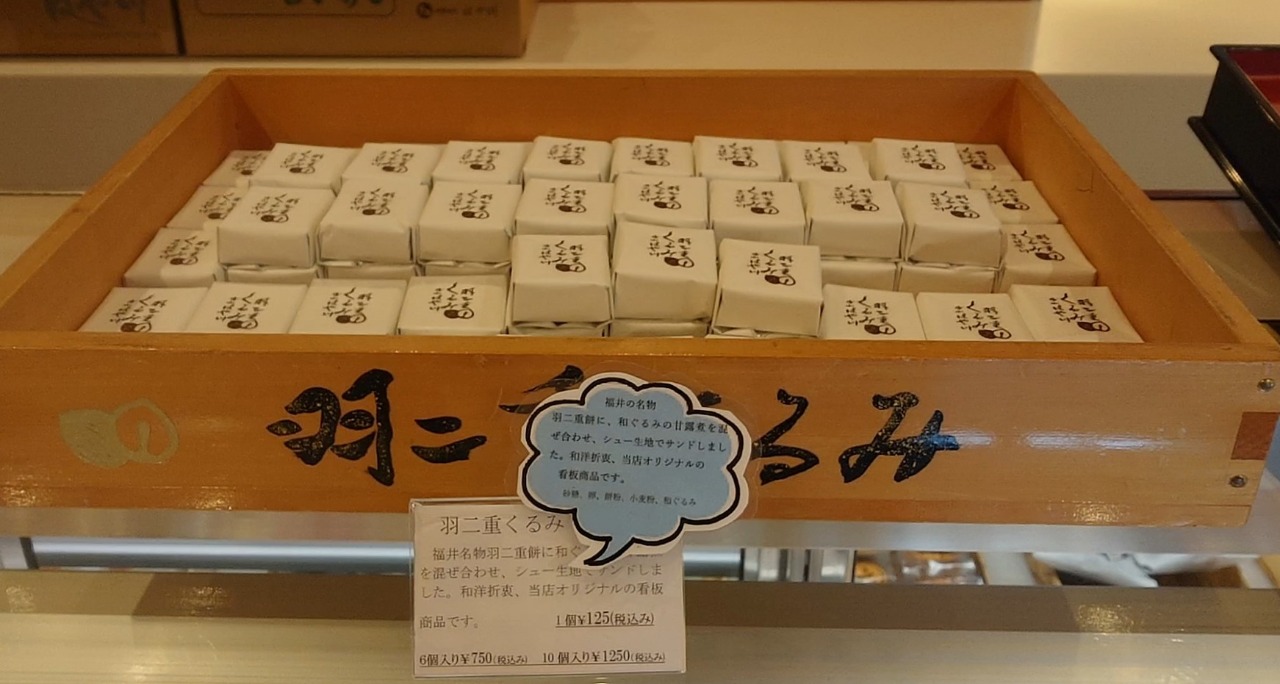 羽二重くるみ
福井の名物
羽二重餅に、和ぐるみの甘露煮を混
ぜ合わせ、シュー生地でサンドしまし
た。和洋折衷、当店オリジナルの
看板商品です。
砂糖、卵、餅粉、小麦粉、和ぐるみ
羽二重くるみ
福井名物羽二重餅に和ぐ
を混ぜ合わせ、シュー生地でサンドしま
した。和洋折衷、当店オリジナルの看板
商品です。 1個¥125(税込み)
6個入り¥750(税込み) 10個入り¥1250(税込み)